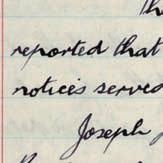 th
reported that
notices served
Joseph